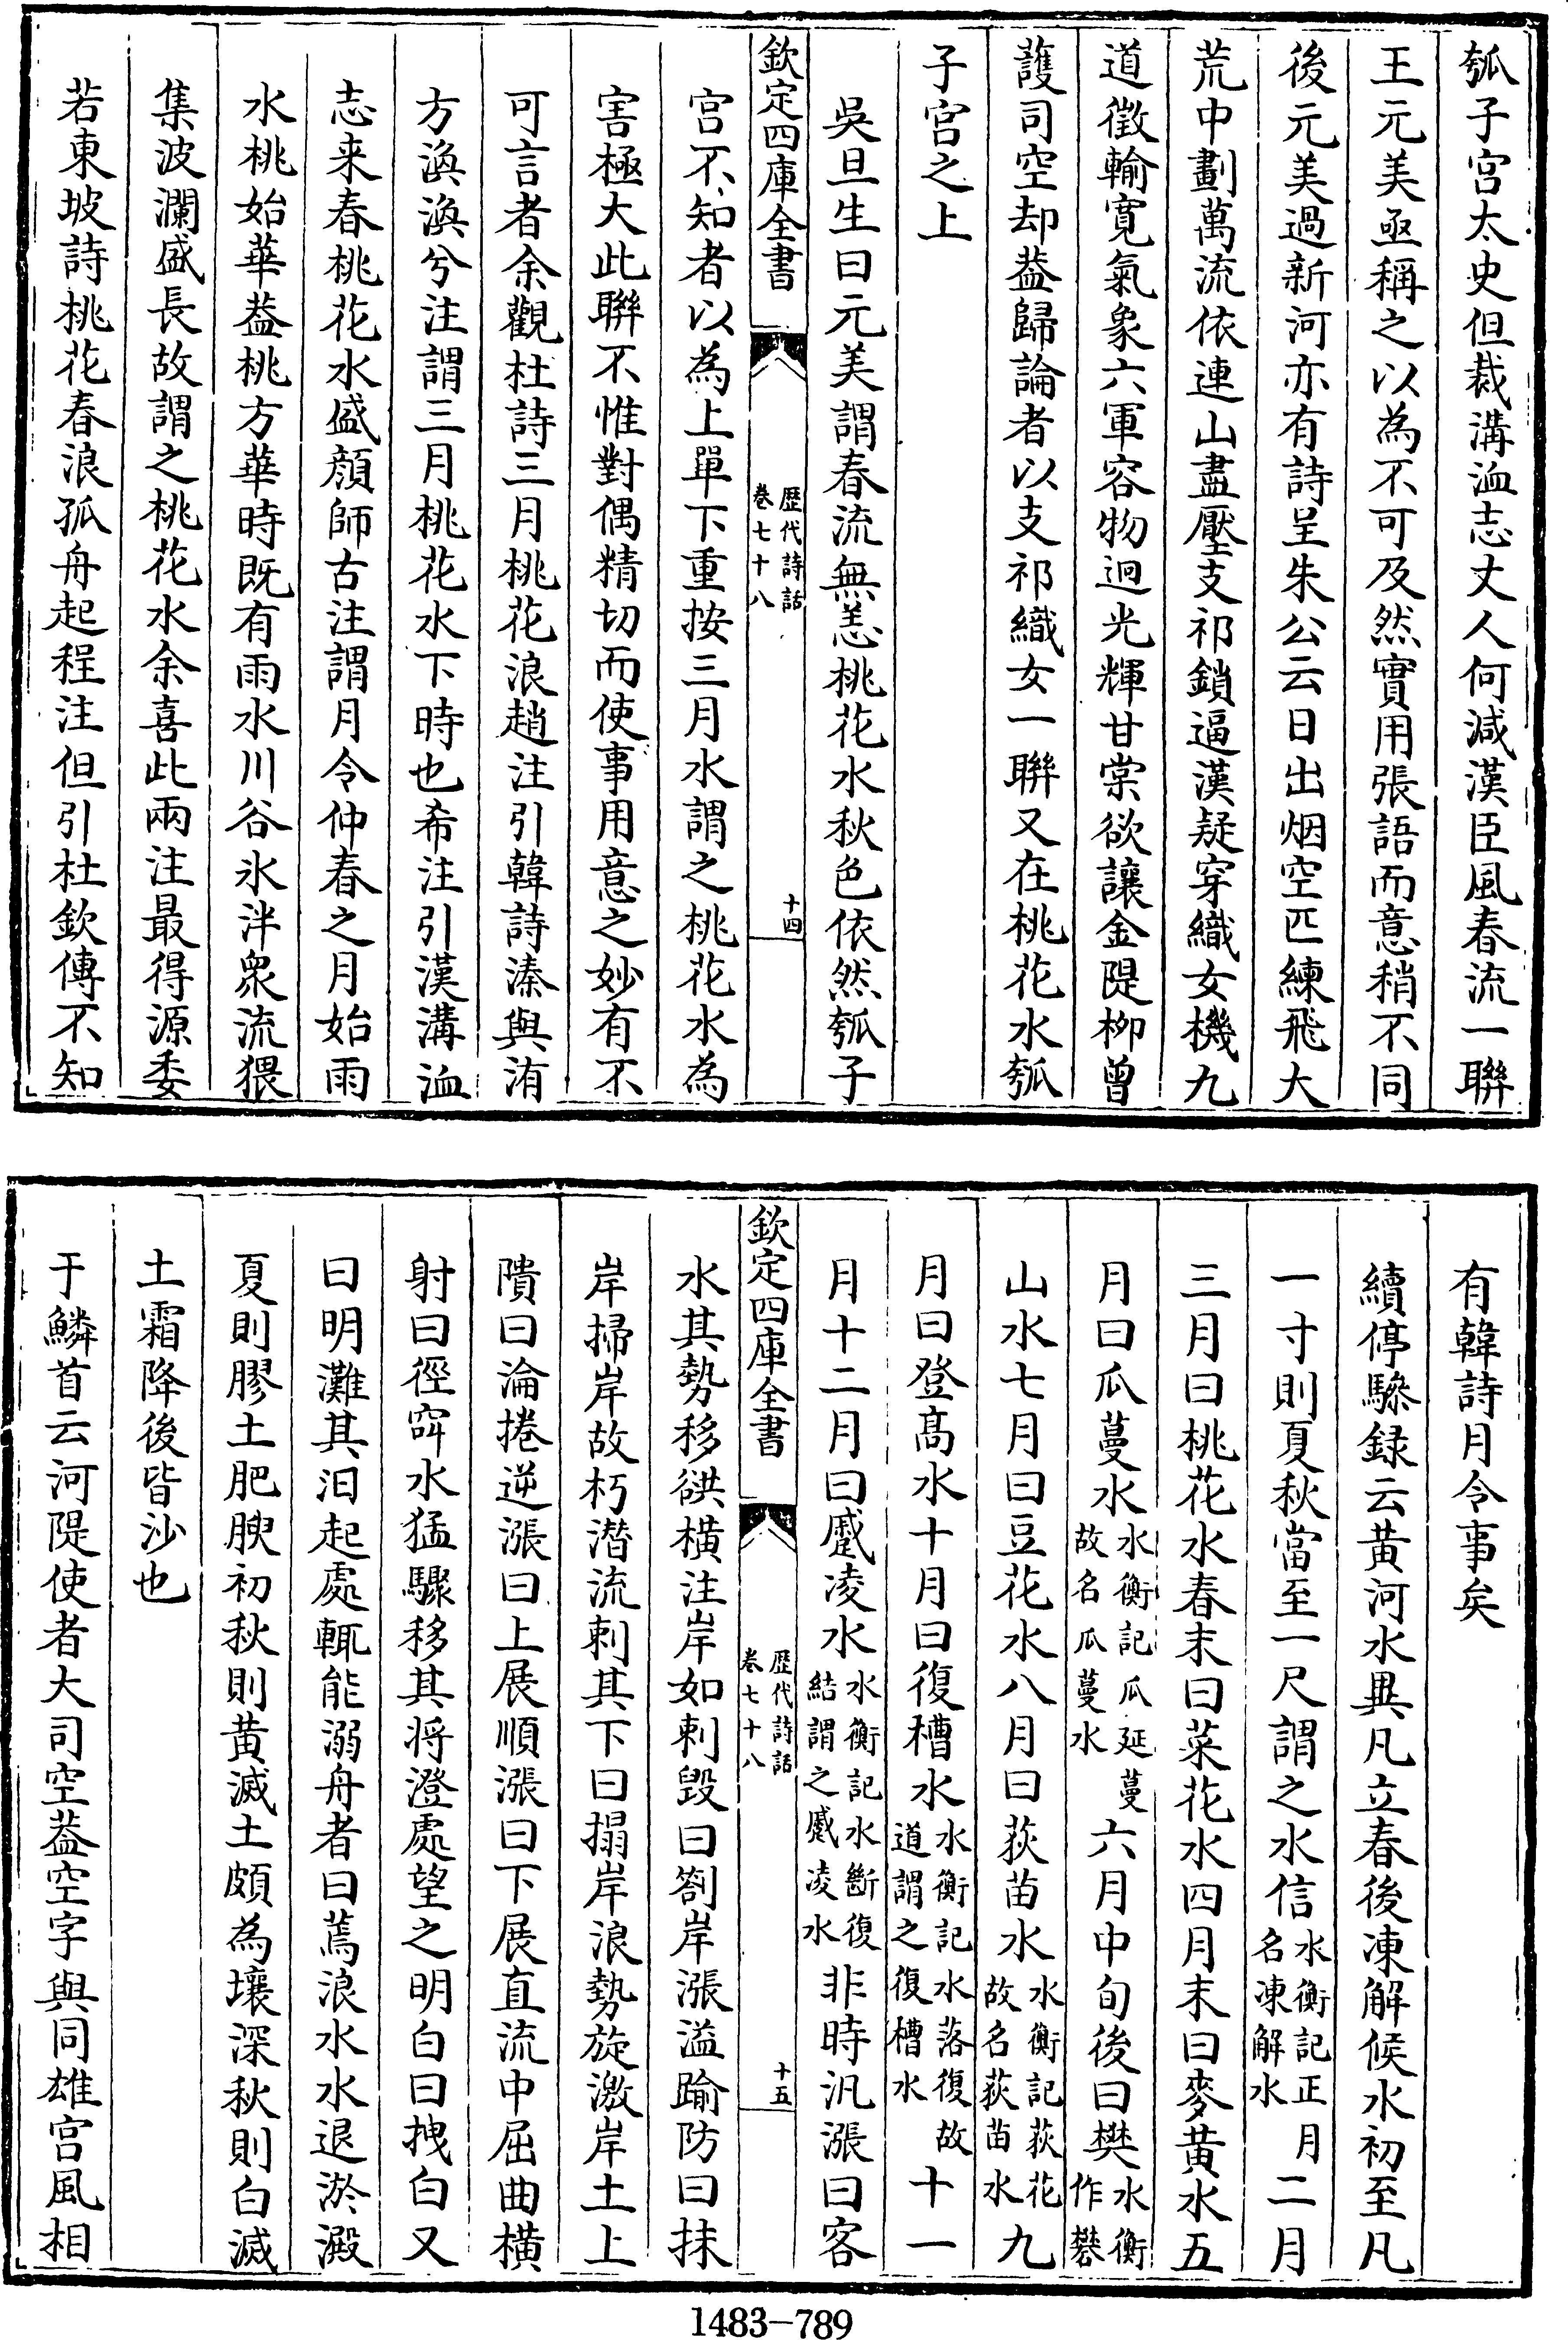 瓠子宮太史但裁溝洫志丈人何減漢臣風春流一聯
王元美亟稱之以為不可及然實用張語而意稍不同
後元美過新河亦有詩呈朱公云日出烟空匹練飛大
荒中劃萬流依連山盡壓支祁鎖逼漢疑穿織女機九
道徵輸寬氣象六軍容物迥光輝甘棠欲讓金隄柳曾
護司空却葢歸論者以支祁織女一聯又在桃花水瓠
子宮之上
吳旦生曰元美謂春流無恙桃花水秋色依然瓠子
欽定四庫全書
歴代詩話
卷七十八
十四
宮不知者以為上單下重按三月水謂之桃花水為
害極大此聯不惟對偶精切而使事用意之妙有不
可言者余觀杜詩三月桃花浪趙注引韓詩溱與洧
方渙渙兮注謂三月桃花水下時也希注引漢溝洫
志来春桃花水盛顔師古注謂月令仲春之月始雨
水桃始華葢桃方華時既有雨水川谷氷泮衆流猥
集波瀾盛長故謂之桃花水余喜此兩注最得源委
若東坡詩桃花春浪孤舟起程注但引杜欽傳不知
有韓詩月令事矣
續停驂録云黃河水異凡立春後凍解候水初至凡
一寸則夏秋當至一尺謂之水信水衡記正月名凍解水二月
三月曰桃花水春末曰菜花水四月末曰麥黃水五
月曰瓜蔓水水衡記瓜延蔓故名瓜蔓水六月中旬後曰樊水衡作礬
山水七月曰豆花水八月曰荻苗水水衡記荻花故名荻苗水九
月曰登髙水十月曰復槽水水衡記水落復故道謂之復槽水十一
月十二月曰蹙凌水水衡記水斷復結謂之蹙凌水非時汎漲曰客
欽定四庫全書
歴代詩話
卷七十八
十五
水其勢移谼橫注岸如刺毀曰劄岸漲溢踰防曰抹
岸掃岸故朽潛流刺其下曰搨岸浪勢旋激岸土上
隤曰淪捲逆漲曰上展順漲曰下展直流中屈曲橫
射曰徑窙水猛驟移其将澄處望之明白曰拽白又
曰明灘其汩起處輒能溺舟者曰蔫浪水水退淤澱
夏則膠土肥腴初秋則黃滅土頗為壤深秋則白滅
土霜降後皆沙也
于鱗首云河隄使者大司空葢空字與同雄宮風相
1483-789